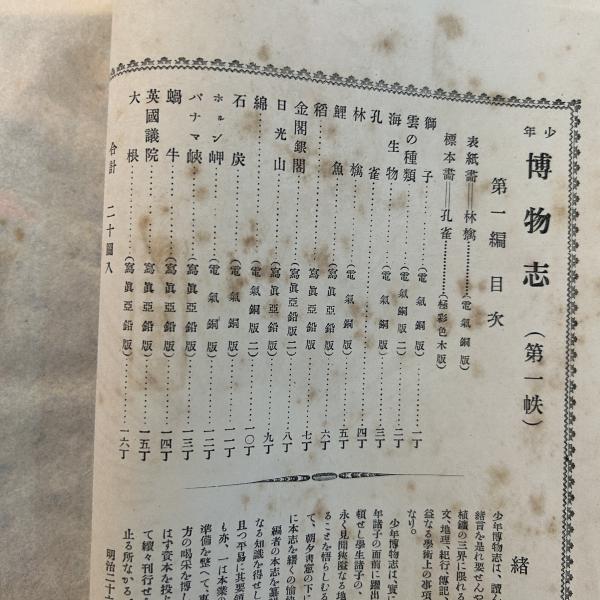 少年 博物志 (第一帙)
第一編 目次
表紙畵＝林檎………(電氣銅版)
標本畵＝孔雀………(極彩色木版)
獅子………(電氣銅版)………一丁
雲の種類………(電氣銅版二)………二丁
海生物………(電氣銅版)………三丁
孔雀………四丁
林檎………(電氣銅版)………五丁
鯉魚………(寫眞亞鉛版)………六丁
稻………(寫眞亞鉛版)………七丁
金閣銀閣………(寫眞亞鉛版二)………八丁
日光山………(寫眞亞鉛版)………九丁
綿………(電氣銅版二)………一〇丁
石炭………(寫眞亞鉛版)………一一丁
ホルン岬………(電氣銅版)………一二丁
パナマ峽………(寫眞亞鉛版)………一三丁
蝸牛………(寫眞亞鉛版)………一四丁
英國議院………(寫眞亞鉛版)………一五丁
大根………(寫眞亞鉛版)………一六丁
合計 二十圖入
緖
少年博物志は、讀ん
緖言を是れ要せんや
植鑛の三界に限れる
文、地理、紀行、傳記、
益なる學術上の事項
なり。
少年博物志は實に
年諸子の面前に躍出
頼せし學生諸子の、
永く見聞狹隘なる地
ることを悟らしむる
て、朝夕書窓の下に
に本志を繙くの愉快
編者の本志を纂
なる知識を得せし
且つ平易に其要領
も亦、一は本業の
準備を整へて、事
方の喝采を博し
はず資本を投
て續々刊行せ
止る所なかる
明治二十